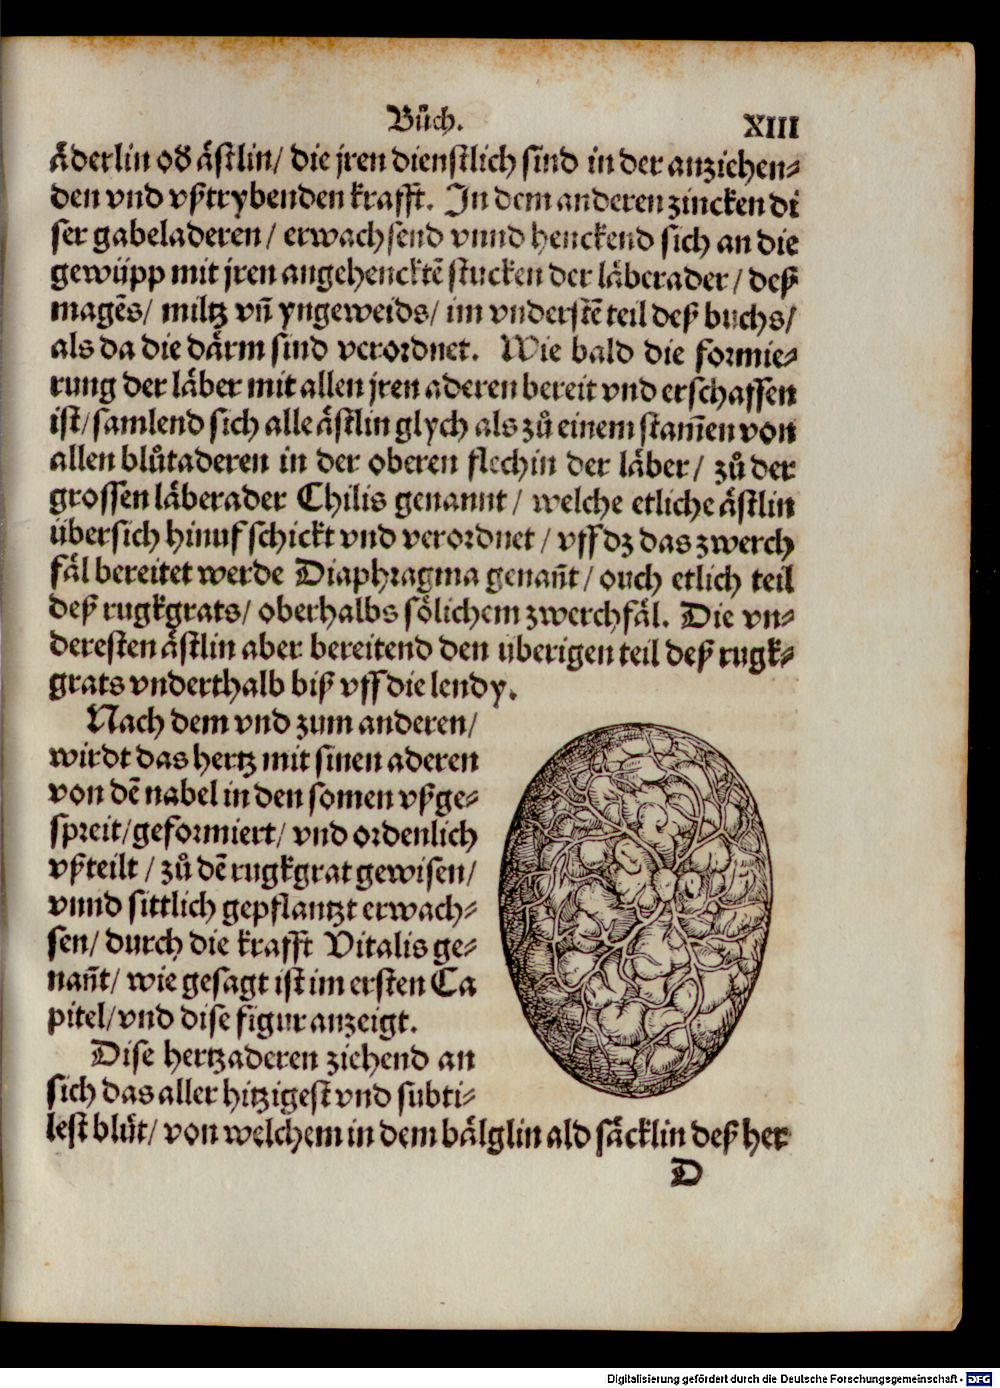 Bůch.
XIII
Äderlin oď ästlin/ die jren dienstlich sind in der anziehen⸗
den vnd vßtrybenden krafft. In dem anderen zincken di
ser gabeladeren/ erwachsend vnnd henckend sich an die
gewüpp mit jren angehencktẽ stucken der läberader/ deß
magẽs/ miltz vñ yngeweids/ im vnderstẽ teil deß buchs/
als da die därm sind verordnet. Wie bald die formie⸗
rung der läber mit allen jren aderen bereit vnd erschaffen
ist/ samlend sich alle ästlin glych als zů einem stam̃en von
allen blůtaderen in der oberen flech in der läber/ zů der
grossen läberader Chilis genannt/ welche etliche ästlin
übersich hinuf schickt vnd verordnet/ vff dz das zwerch
fäl bereitet werde Diaphragma genañt/ ouch etlich teil
deß rugkgrats/ oberhalb sölichem zwerchfäl. Die vn⸗
deresten ästlin aber bereitend den überigen teil deß rugk⸗
grats vnderthalb biß vff die lendy.
Nach dem vnd zum anderen/
wirdt das hertz mit sinen aderen
von dẽ nabel in den somen vßge⸗
spreit/ geformiert/ vnd ordenlich
vßteilt/ zů dẽ rugkgrat gewisen/
vnnd sittlich gepflantzt erwach⸗
sen/ durch die krafft Vitalis ge⸗
nañt/ wie gesagt ist im ersten Ca
pitel/ vnd dise figur anzeigt.
Dise hertzaderen ziehend an
sich das aller hitzigest vnd subti⸗
lest blůt/ von welchem in dem bälglin ald säcklin deß her
D
Digitalisierung gefördert durch die Deutsche Forschungsgemeinschaft - DFG